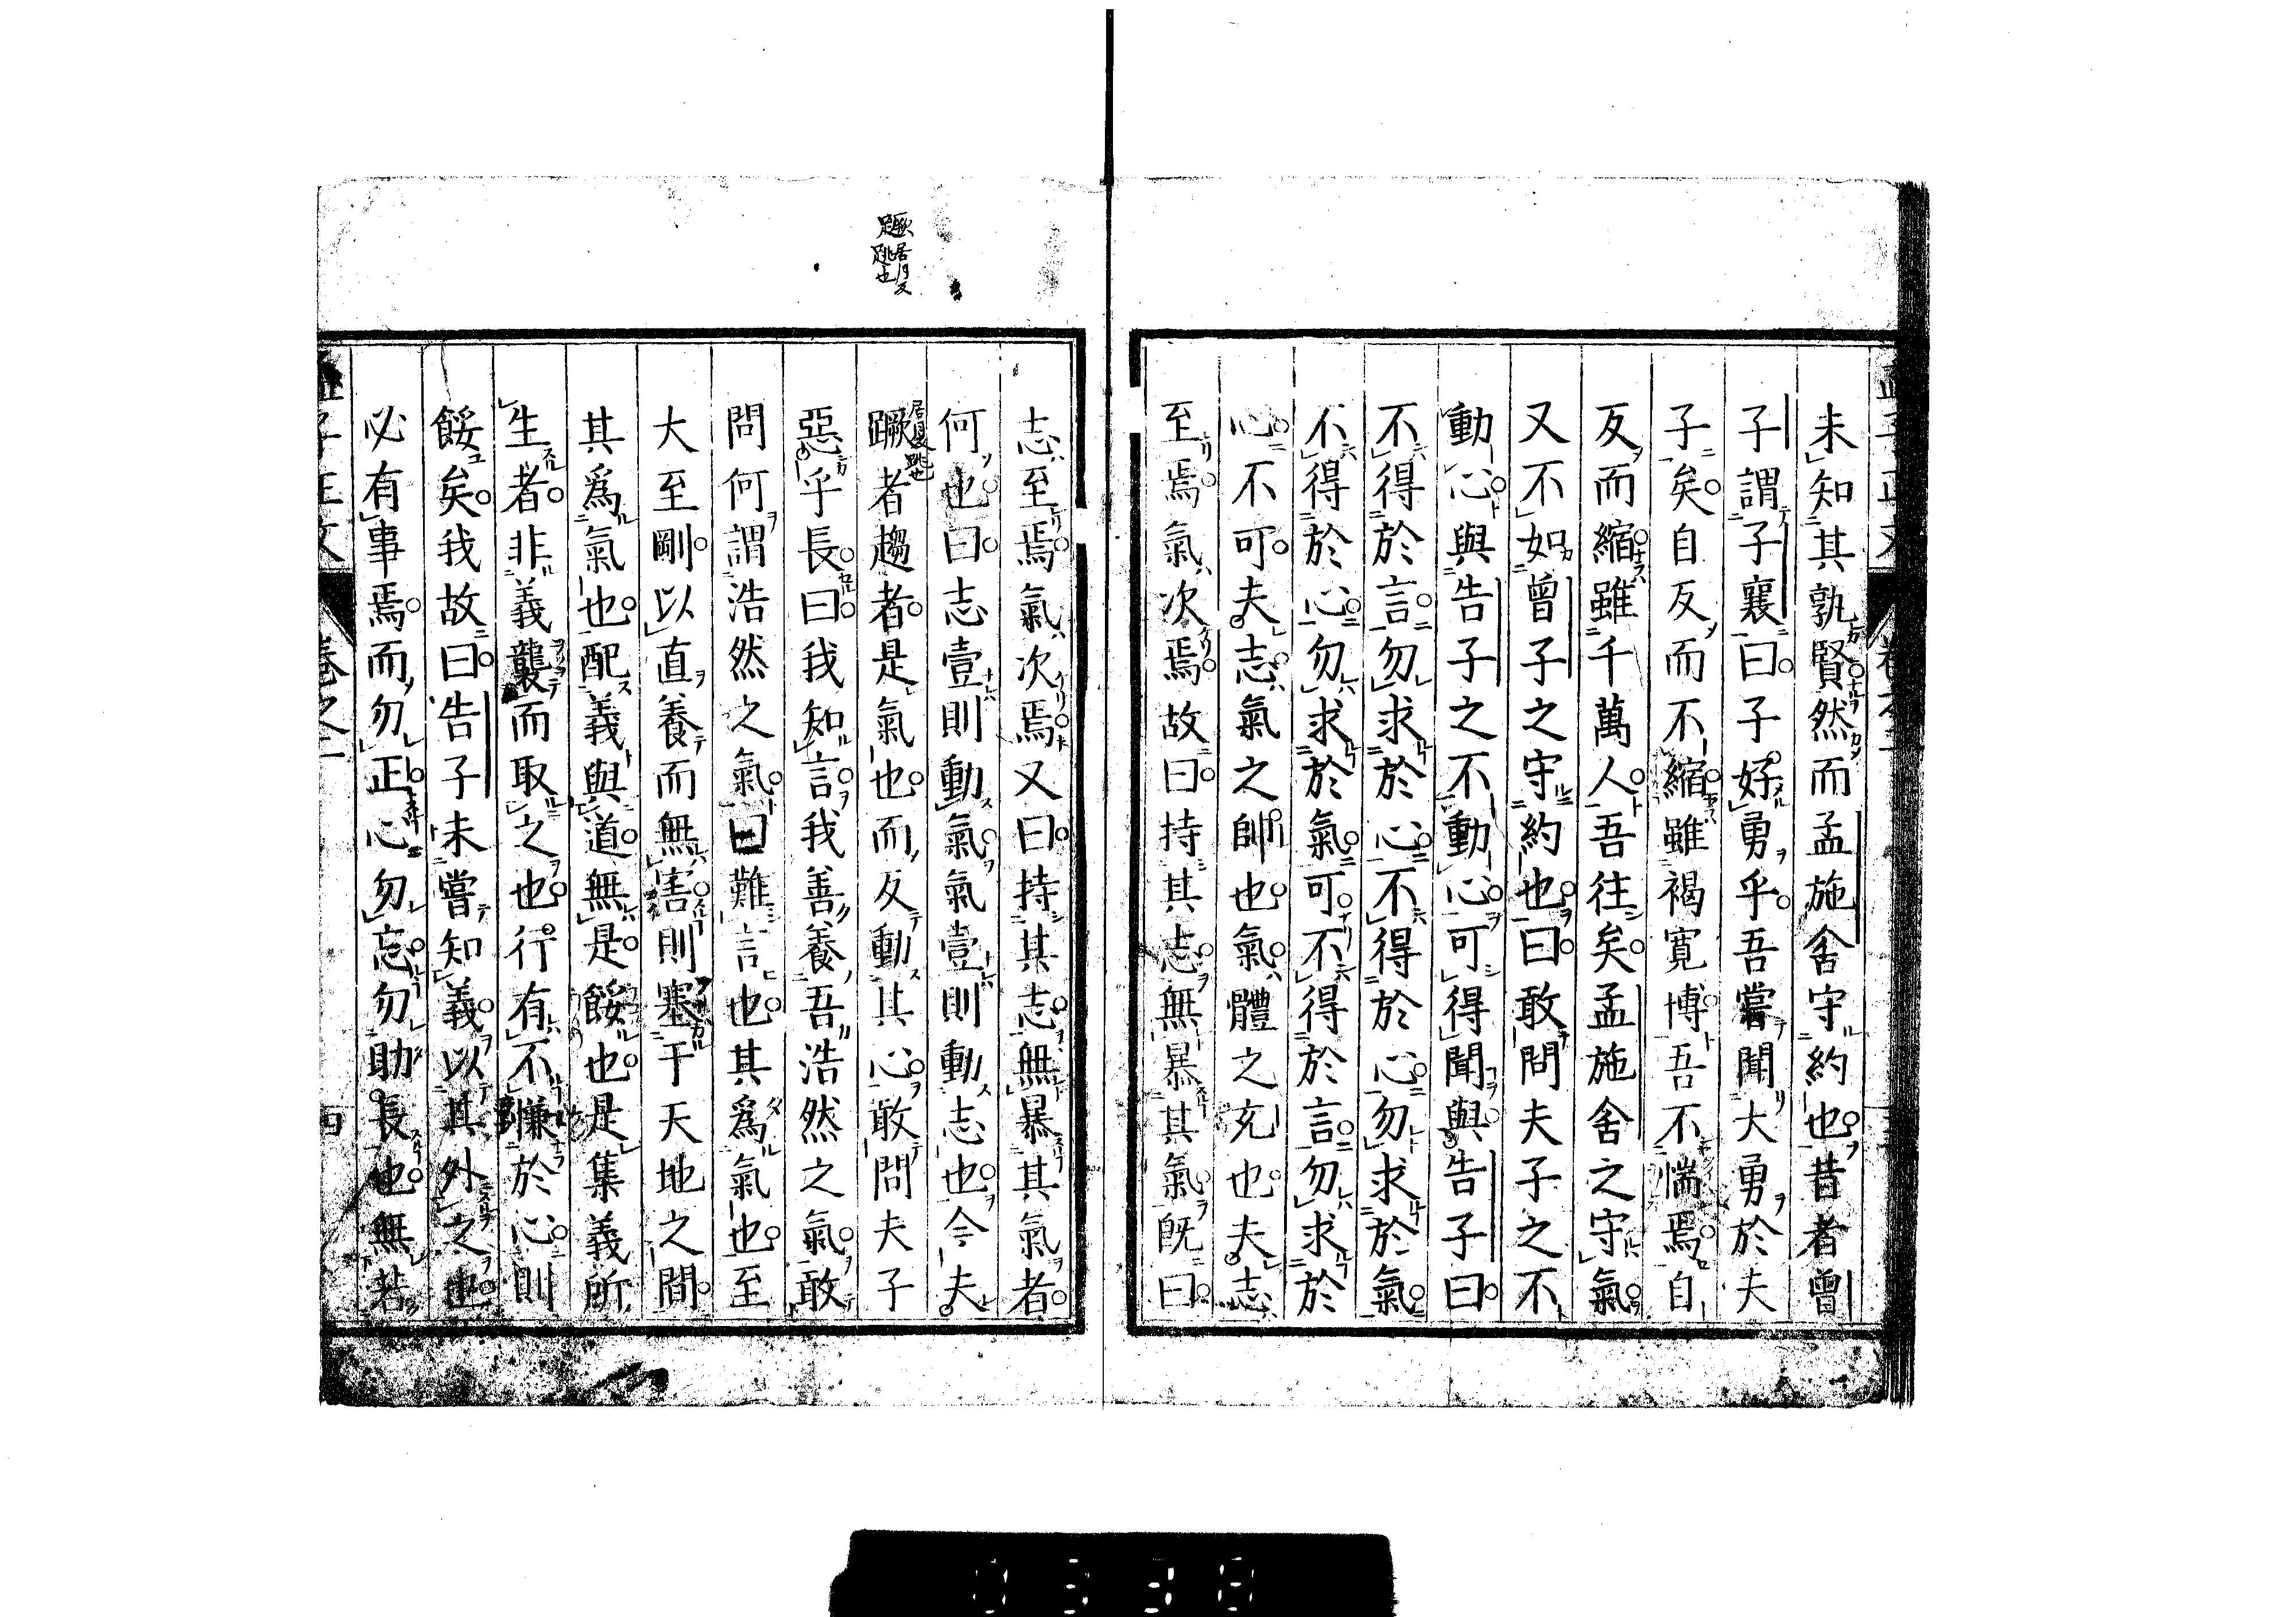 未知其孰賢然而孟施舍守約也昔者曾
子謂子襄曰子好勇乎吾嘗聞大勇於夫
子矣自反而不縮雖褐寬博吾不惴焉自
反而縮雖千萬人吾往矣孟施舍之守氣
又不如曾子之守約也曰敢問夫子之不
動心與告子之不動心可得聞與告子曰
不得於言勿求於心不得於心勿求於氣
不得於心勿求於氣可不得於言勿求於
心不可夫志氣之帥也氣體之充也夫志
至焉氣次焉故曰持其志無暴其氣既曰
志至焉氣次焉又曰持其志無暴其氣者
何也曰志壹則動氣氣壹則動志也今夫
蹶者趨者是氣也而反動其心敢問夫子
惡乎長曰我知言我善養吾浩然之氣敢
問何謂浩然之氣曰難言也其爲氣也至
大至剛以直養而無害則塞于天地之間
其爲氣也配義與道無是餒也是集義所
生者非義襲而取之也行有不慊於心則
餒矣我故曰告子未嘗知義以其外之也
必有事焉而勿正心勿忘勿助長也無若
孟子正文
卷之二
四
0338